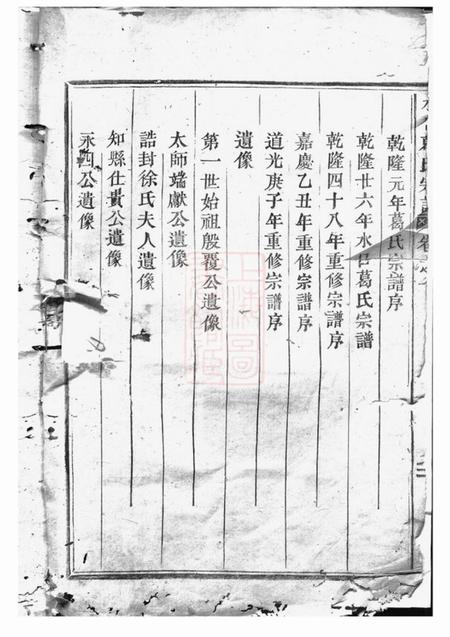 葛氏宗譜
乾隆元年葛氏宗譜序
乾隆廿六年水呂葛氏宗譜
乾隆四十八年重修宗譜序
嘉慶乙丑年重修宗譜序
道光庚子年重修宗譜序
遺像
第一世始祖殷覆公遺像
太師端獻公遺像
誥封徐氏夫人遺像
知縣仕貴公遺像
永四公遺像